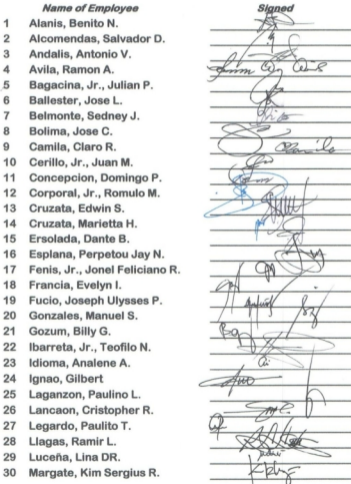 Name of Employee Signed
1 Alanis, Benito N.
2 Alcomendas, Salvador D.
3 Andalis, Antonio V.
4 Avila, Ramon A.
5 Bagacina, Jr., Julian P.
6 Ballester, Jose L.
7 Belmonte, Sedney J.
8 Bolima, Jose C.
9 Camila, Claro R.
10 Cerillo, Jr., Juan M.
11 Concepcion, Domingo P.
12 Corporal, Jr., Romulo M.
13 Cruzata, Edwin S.
14 Cruzata, Marietta H.
15 Ersolada, Dante B.
16 Esplana, Perpetou Jay N.
17 Fenis, Jr., Jonel Feliciano R.
18 Francia, Evelyn I.
19 Fucio, Joseph Ulysses P.
20 Gonzales, Manuel S.
21 Gozum, Billy G.
22 Ibarreta, Jr., Teofilo N.
23 Idioma, Analene A.
24 Ignao, Gilbert
25 Laganzon, Paulino L.
26 Lancaon, Cristopher R.
27 Legardo, Paulito T.
28 Llagas, Ramir L.
29 Luceña, Lina DR.
30 Margate, Kim Sergius R.